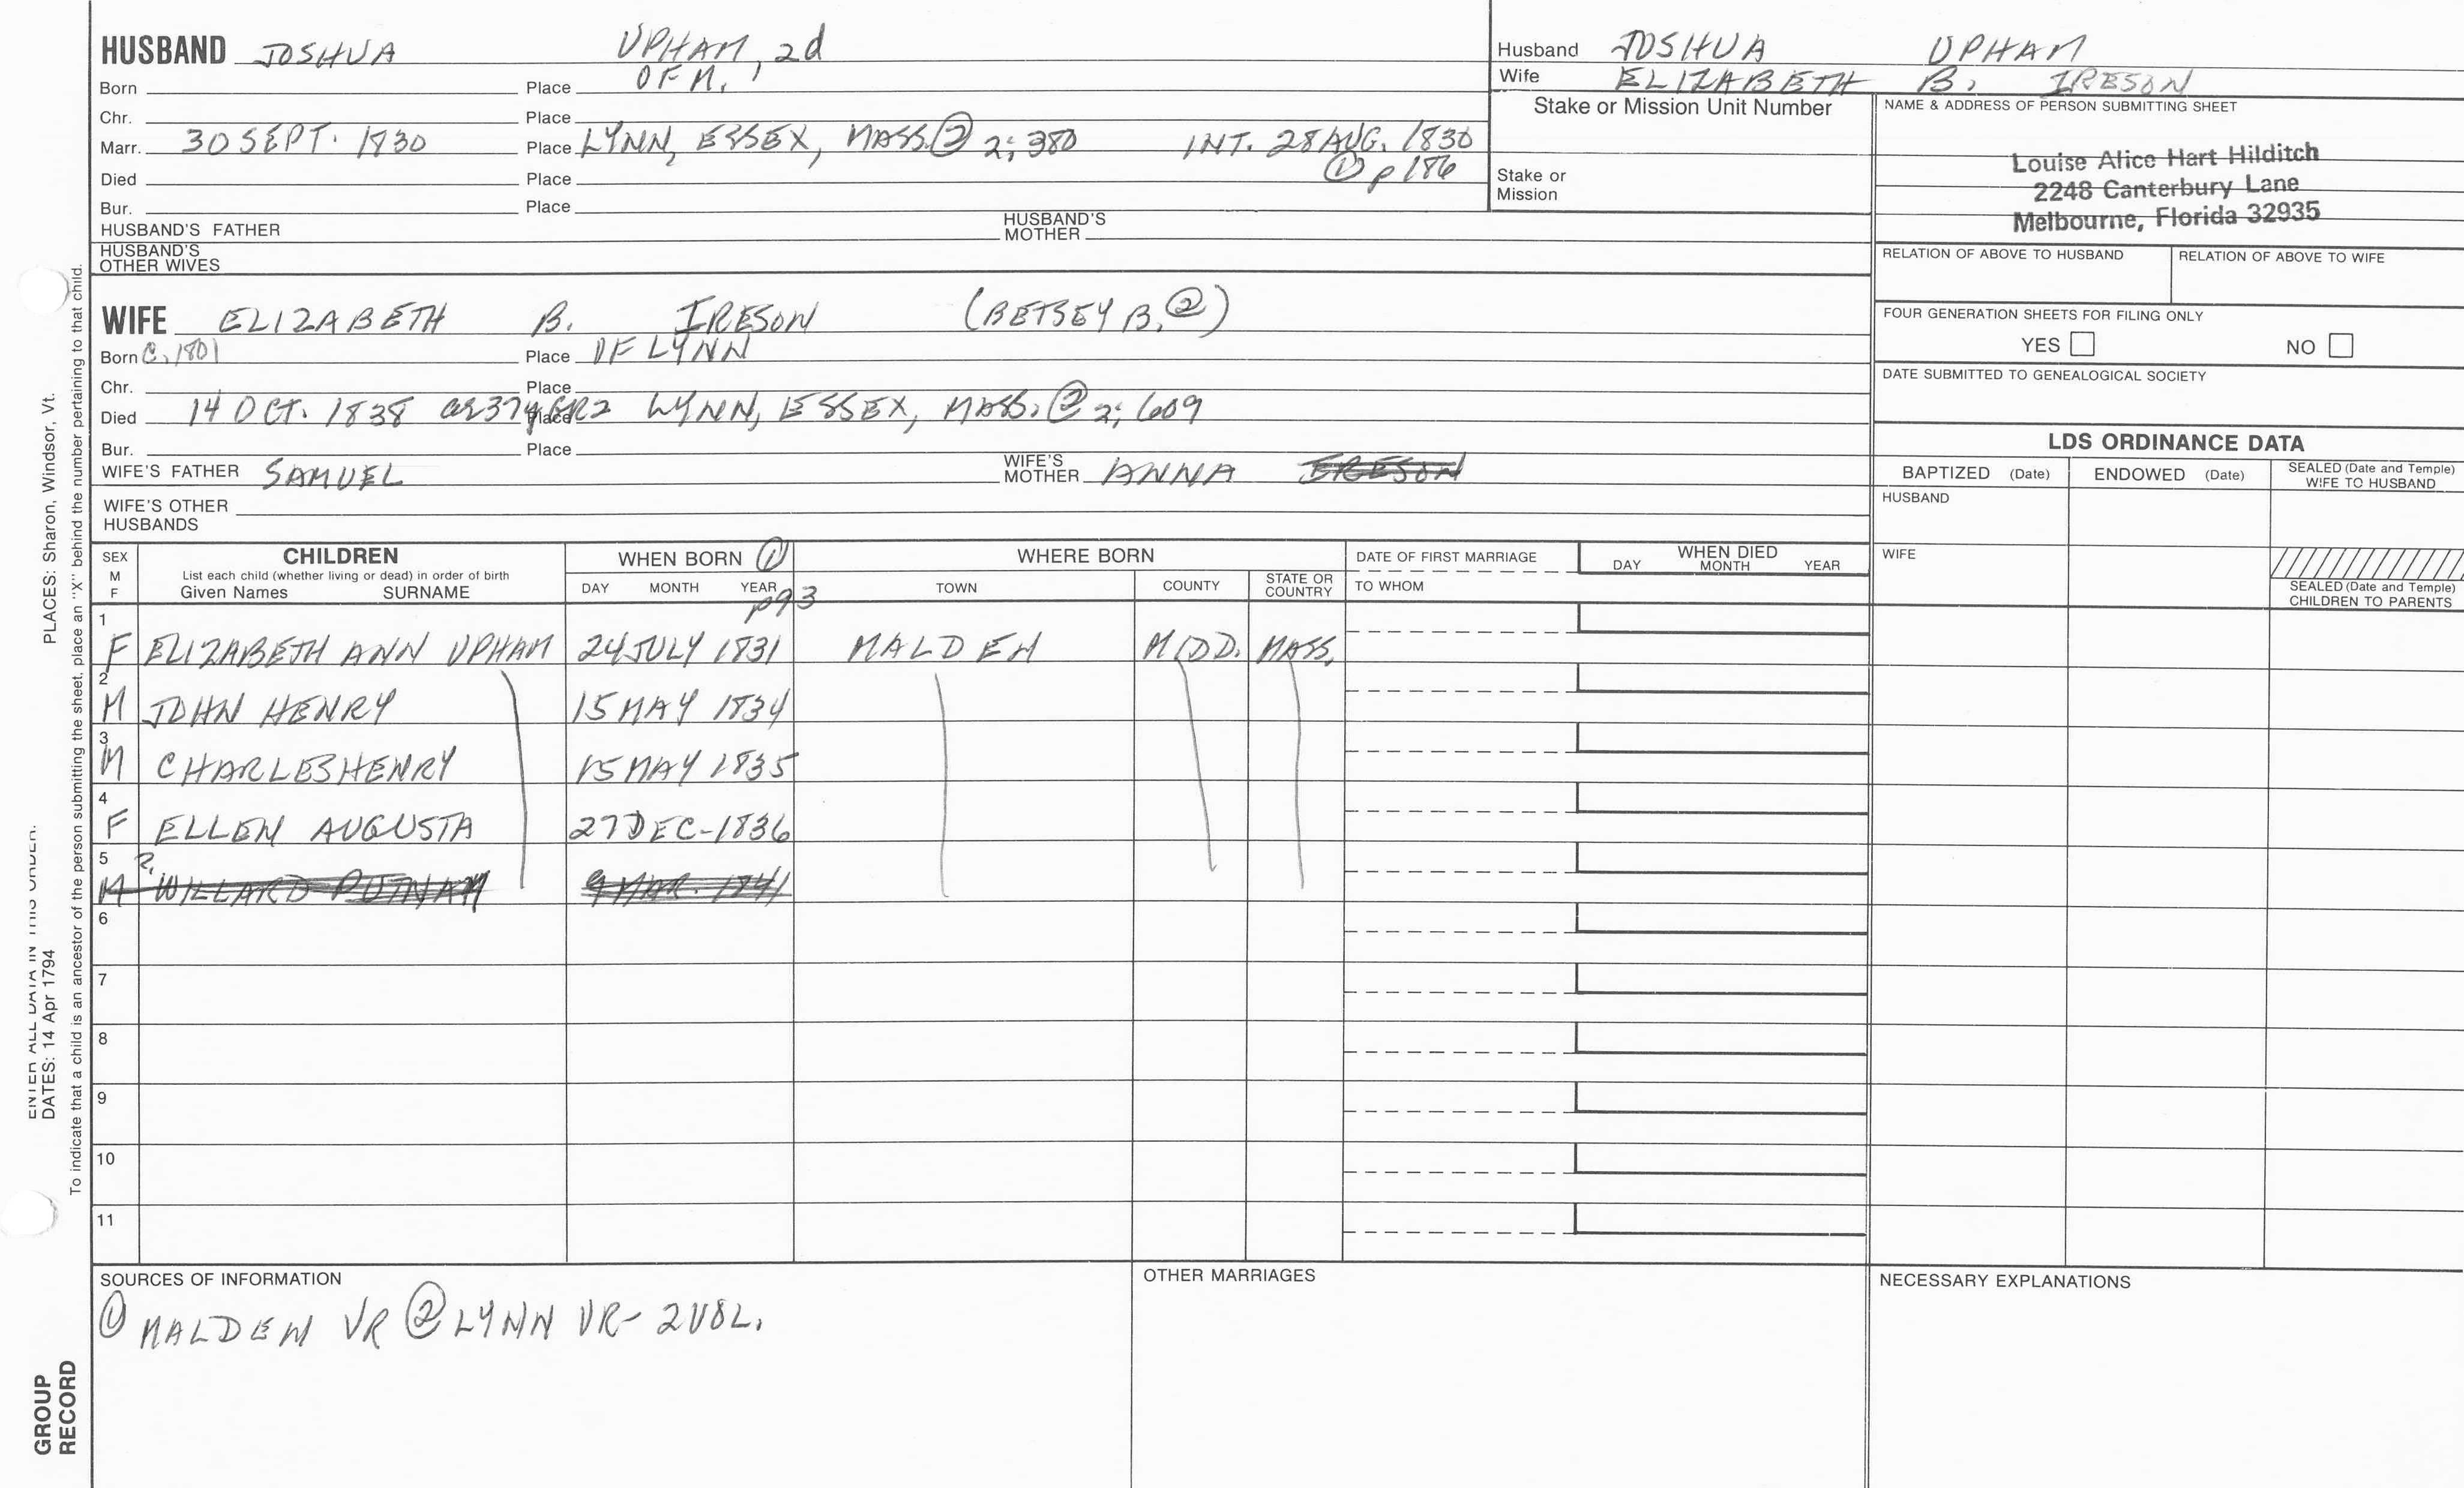 HUSBAND JOSHUA UPHAM, 2d
Born Place OF M.
Chr. Place
Marr. 30 SEPT. 1830 Place LYNN, ESSEX, MASS. ② 2; 380 INT. 28 AUG. 1830
① p 186
Died Place
Bur. Place
HUSBAND'S FATHER HUSBAND'S MOTHER
HUSBAND'S OTHER WIVES
Husband JOSHUA UPHAM
Wife ELIZABETH B. IRESON
Stake or Mission Unit Number
Stake or Mission
NAME & ADDRESS OF PERSON SUBMITTING SHEET
Louise Alice Hart Hilditch
2248 Canterbury Lane
Melbourne, Florida 32935
RELATION OF ABOVE TO HUSBAND RELATION OF ABOVE TO WIFE
FOUR GENERATION SHEETS FOR FILING ONLY
YES NO
DATE SUBMITTED TO GENEALOGICAL SOCIETY
WIFE ELIZABETH B. IRESON (BETSEY B. ②)
Born C. 1801 Place OF LYNN
Chr. Place
Died 14 OCT. 1838 ae 37y GR2 Place LYNN, ESSEX, MASS. ② 2; 609
Bur. Place
WIFE'S FATHER SAMUEL WIFE'S MOTHER ANNA IRESON
WIFE'S OTHER HUSBANDS
LDS ORDINANCE DATA
BAPTIZED (Date) ENDOWED (Date) SEALED (Date and Temple) WIFE TO HUSBAND
HUSBAND
WIFE
SEALED (Date and Temple) CHILDREN TO PARENTS
SEX M F CHILDREN WHEN BORN ① WHERE BORN DATE OF FIRST MARRIAGE WHEN DIED
List each child (whether living or dead) in order of birth
Given Names SURNAME DAY MONTH YEAR TOWN COUNTY STATE OR COUNTRY TO WHOM DAY MONTH YEAR
p93
1 F ELIZABETH ANN UPHAM 24 JULY 1831 MALDEN MIDD. MASS.
2 M JOHN HENRY 15 MAY 1834
3 M CHARLES HENRY 15 MAY 1835
4 F ELLEN AUGUSTA 27 DEC-1836
5 ? M WILLARD PUTNAM 9 MAR. 1841
6
7
8
9
10
11
SOURCES OF INFORMATION
① MALDEN VR ② LYNN VR- 2 VOL.
OTHER MARRIAGES
NECESSARY EXPLANATIONS
ENTER ALL DATA IN THIS ORDER:
DATES: 14 Apr 1794 PLACES: Sharon, Windsor, Vt.
To indicate that a child is an ancestor of the person submitting the sheet, place an "X" behind the number pertaining to that child.
GROUP
RECORD